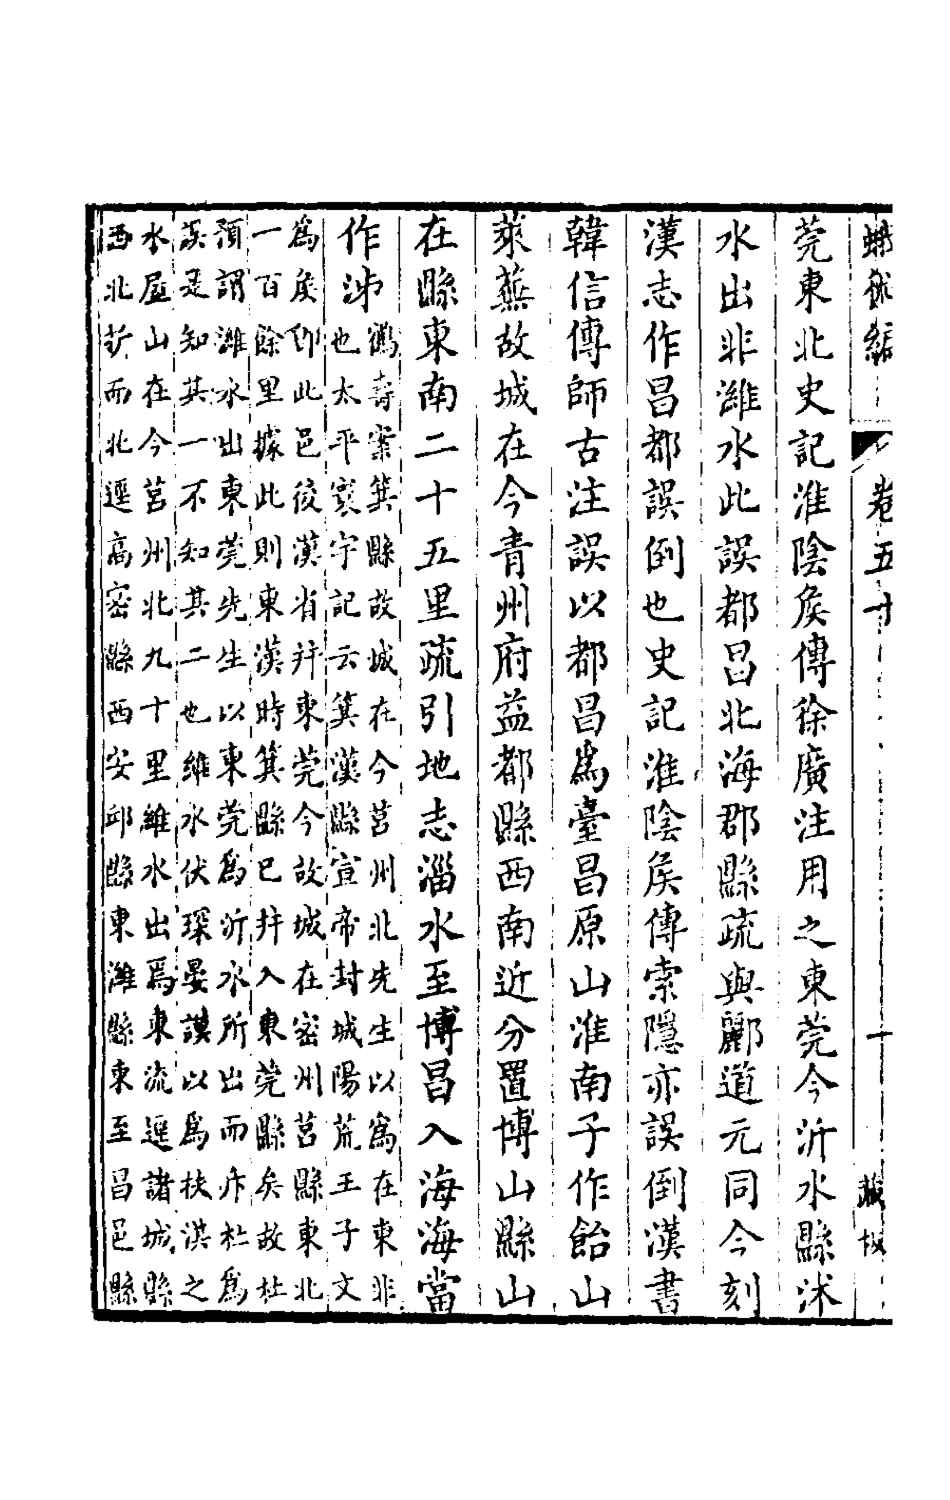 蛾術編
卷五十
十
藏板
莞東北史記淮陰矦傳徐廣注用之東莞今沂水縣沭
水出非濰水此誤都昌北海郡縣疏與酈道元同今刻
漢志作昌都誤倒也史記淮陰矦傳索隱亦誤倒漢書
韓信傳師古注誤以都昌爲臺昌原山淮南子作飴山
萊蕪故城在今青州府益都縣西南近分置博山縣山
在縣東南二十五里疏引地志淄水至博昌入海海當
作泲鶴壽案箕縣故城在今莒州北先生以爲在東非
也太平寰宇記云箕漢縣宣帝封城陽荒王子文
爲矦卽此邑後漢省幷東莞今故城在密州莒縣東北
一百餘里據此則東漢時箕縣已幷入東莞縣矣故杜
預謂濰水出東莞先生以東莞爲沂水所出而斥杜爲
誤是知其一不知其二也維水伏琛晏謨以爲扶淇之
水㞐山在今莒州北九十里維水出焉東流逕諸城縣
西北折而北逕高密縣西安邱縣東濰縣東至昌邑縣